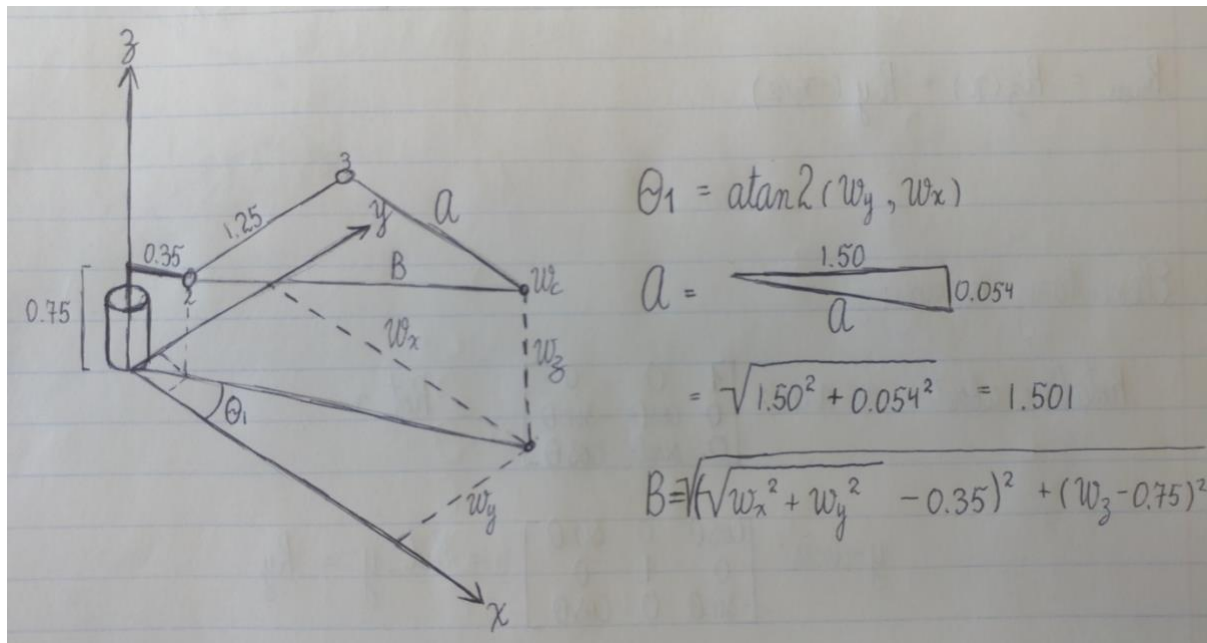 z
3
1.25
y
a
0.35
B
2
Wc
0.75
Wx
Wz
θ1
Wy
x
θ1 = atan2(Wy, Wx)
1.50
a =
0.054
a
= √1.50² + 0.054² = 1.501
B = √(√Wx² + Wy² - 0.35)² + (Wz - 0.75)²